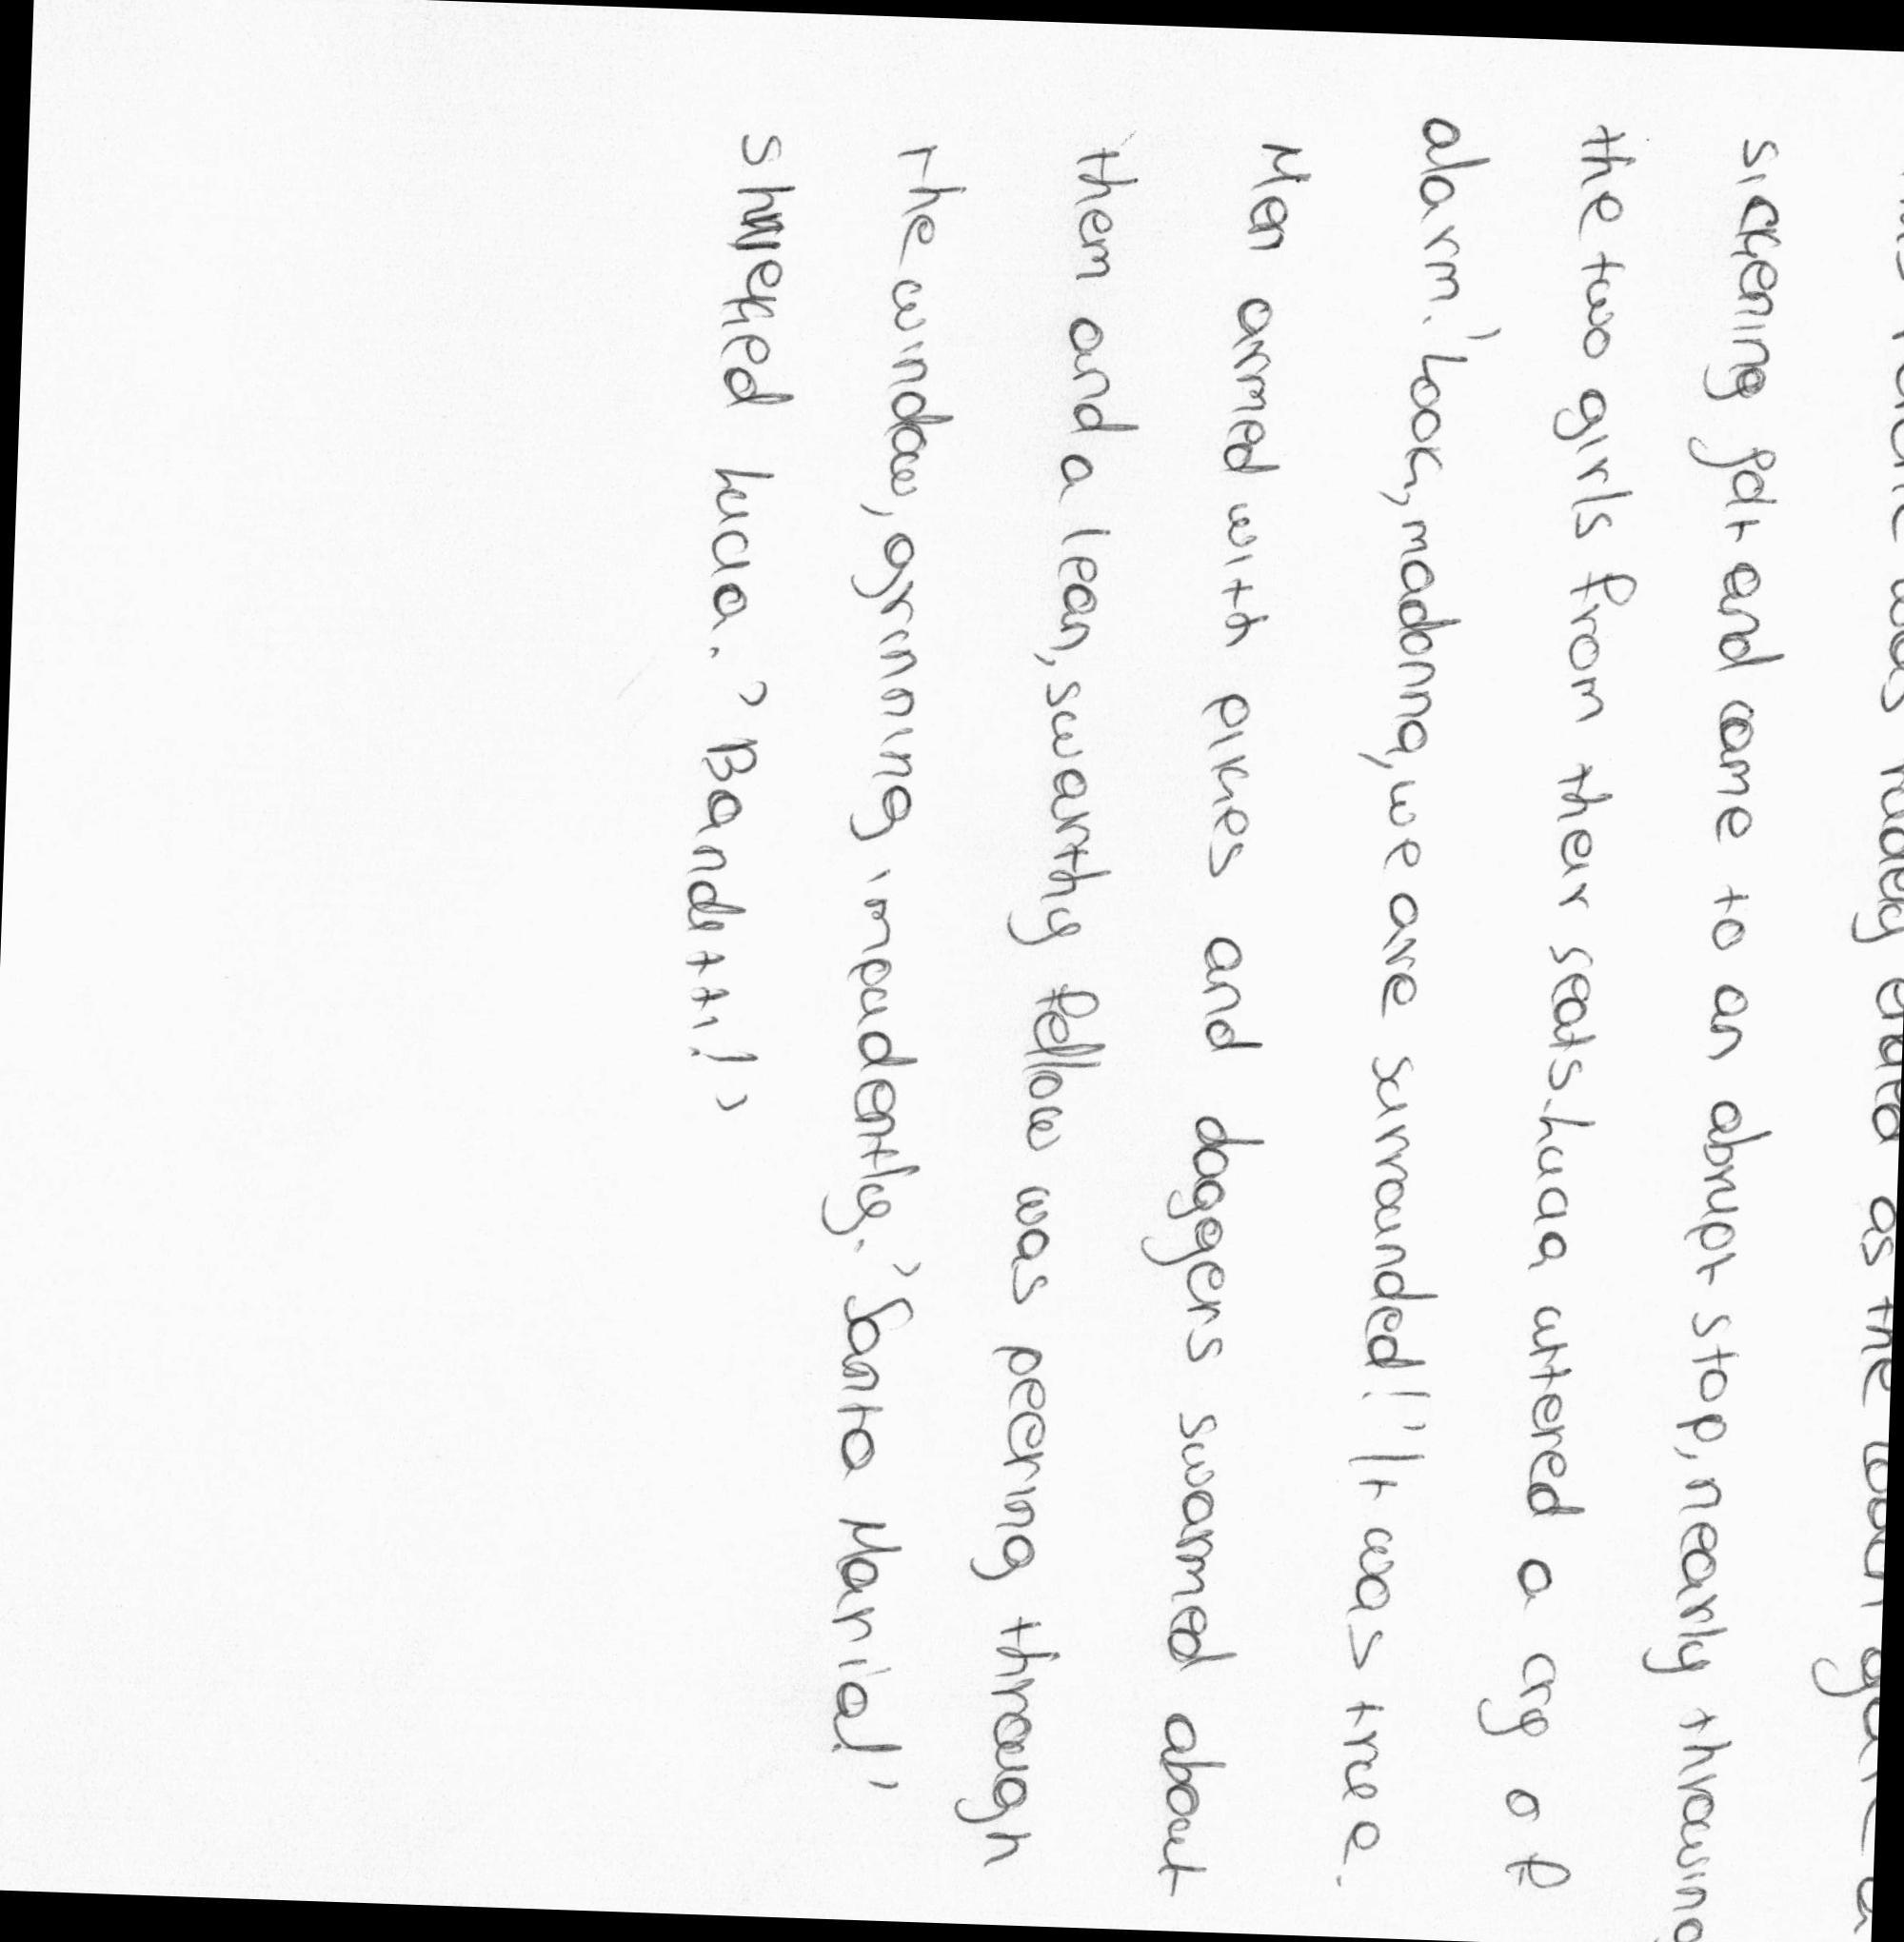 was rudely ended as the coach gave a
sickening jolt and came to an abrupt stop, nearly throwing
the two girls from their seats. Lucia uttered a cry of
alarm. 'Look, madonna, we are surrounded!' It was true.
Men armed with pikes and daggers swarmed about
them and a lean, swarthy fellow was peering through
the window, grinning impudently. 'Santa Maria!'
shrieked Lucia. 'Banditti!'